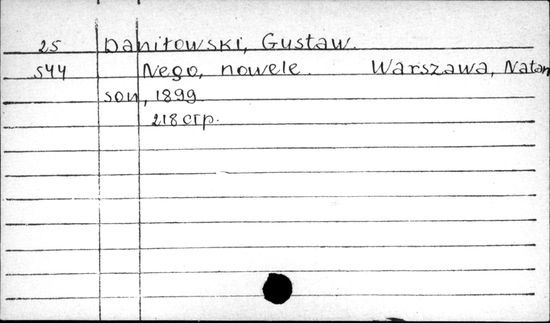 25 Daniłowski, Gustaw.
544 Nego, nowele. Warszawa, Natan
son, 1899
218 стр.